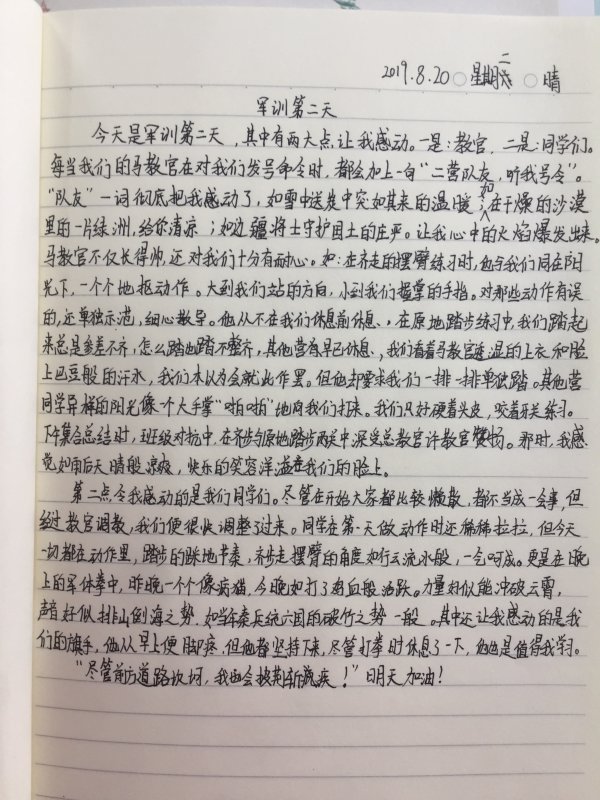 2019.8.20 星期二 晴
军训第二天
今天是军训第二天，其中有两大点让我感动。一是：教官，二是：同学们。
每当我们的马教官在对我们发号命令时，都会加上一句“二营队友，听我号令”。
“队友”一词彻底把我感动了，如雪中送炭中突如其来的温暖；如在干燥的沙漠
里的一片绿洲，给你清凉；如边疆将士守护国土的庄严。让我心中的火焰爆发出来。
马教官不仅长得帅，还对我们十分有耐心。如：在齐走的摆臂练习时，他与我们同在阳
光下，一个个地抠动作。大到我们站的方向，小到我们握掌的手指。对那些动作有误
的，还单独示范，细心教导。他从不在我们休息前休息、，在原地踏步练习中，我们踏起
来总是参差不齐，怎么踏也踏不整齐，其他营有早已休息、，我们看着马教官湿的上衣和脸
上巴豆般的汗水，我们本以为会就此作罢。但他却要求我们一排一排单独踏。其他营
同学异样的阳光像一个大手掌“啪啪”地向我们打来。我们只好硬着头皮，咬着牙关练习。
下午集合总结时，班级对抗中，在齐步与原地踏步两关中深受总教官许教官赞扬。那时，我感
觉如雨后天晴般凉爽，快乐的笑容洋溢在我们的脸上。
第二点令我感动的是我们同学们。尽管在开始大家都比较懒散，都不当成一会事，但
经过教官调教，我们便很快调整了过来。同学在第一天做动作时还稀稀拉拉，但今天
一切都在动作里，踏步的节奏，齐步走摆臂的角度如行云流水般，一气呵成。更是在晚
上的军体拳中，昨晚一个个像病猫，今晚如打了鸡血般活跃。力量好似能冲破云霄，
声音好似排山倒海之势，如当年秦兵统六国的破竹之势一般。其中还让我感动的是我
们的旗手，他从早上便脚疼，但他都坚持下来，尽管打拳时休息了一下，他也是值得我学习。
“尽管前方道路坎坷，我也会披荆斩棘！”明天加油！